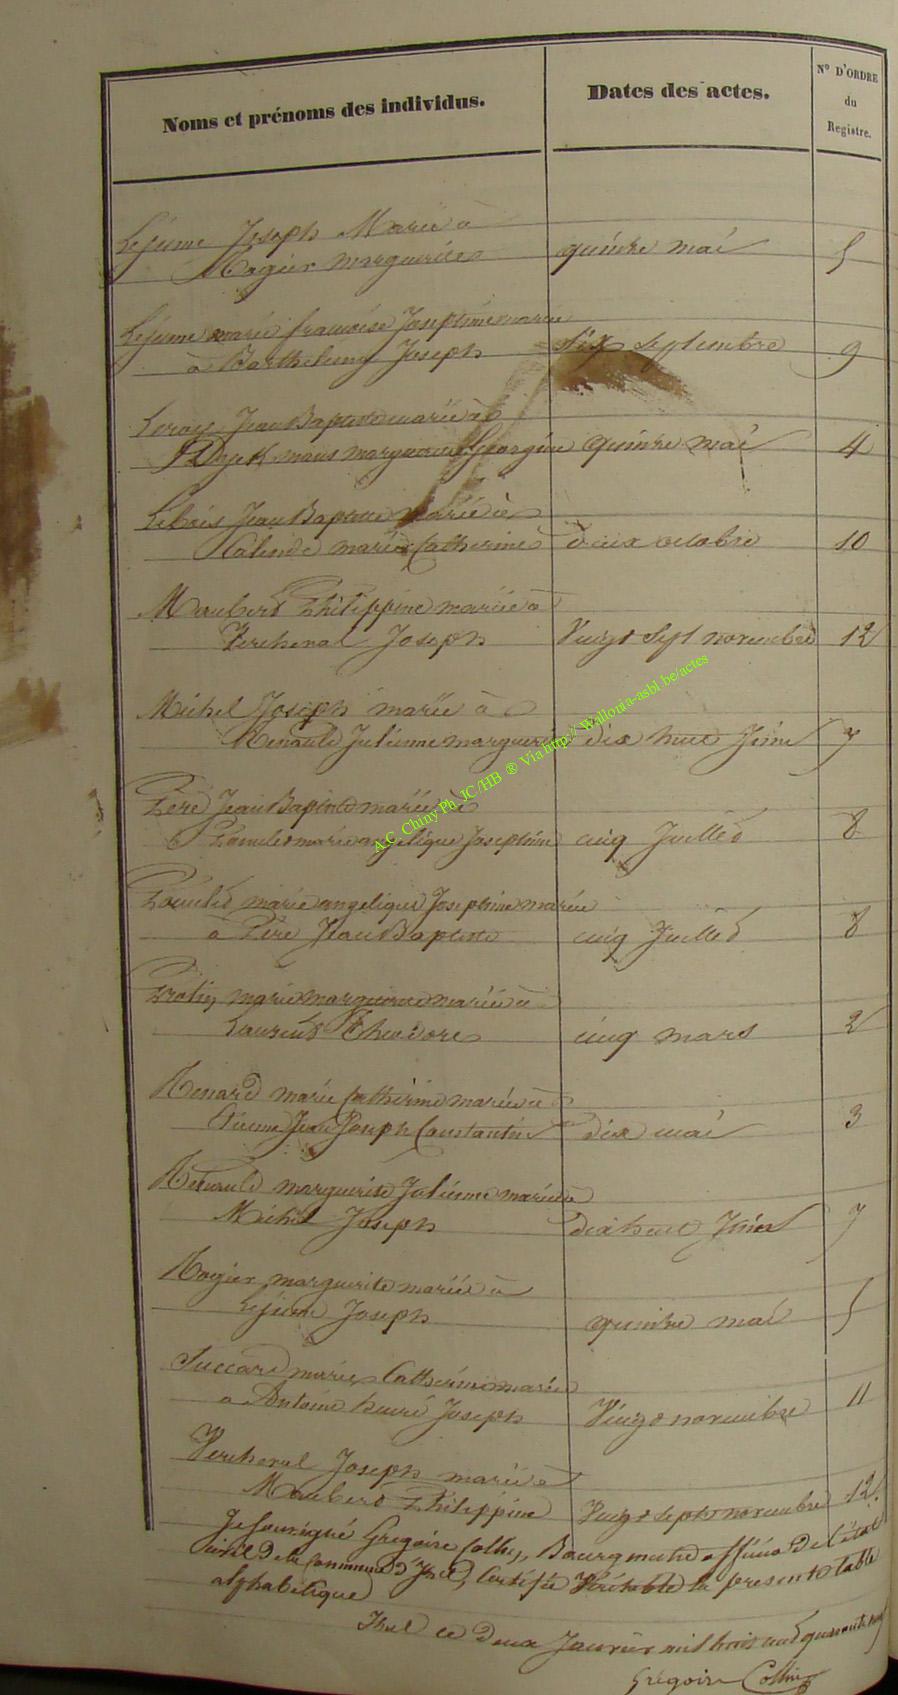 Noms et prénoms des individus.
Dates des actes.
N° D'ORDRE
du
Registre.
Lejeune Joseph Marié à
Rogier marguerite
quinze mai
5
Lejeune marie francoise Josephine mariée
à Barthelemy Joseph
Six Septembre
9
Leroy Jean Baptiste marié à
marguerite Georgine
quinze mai
4
Jean Baptiste marié à
marie Catherine
deux octobre
10
Maubert Philippine mariée à
Vercheval Joseph
Vingt Sept novembre
12
Michel Joseph marié à
Renauld Julienne marguerite
dix huit Juin
7
Père Jean Baptiste marié à
marie angelique Josephine
cinq Juillet
8
marie angelique Josephine mariée
à Père Jean Baptiste
cinq Juillet
8
marie marguerite mariée à
Laurent Theodore
cinq mars
2
Renard marie Catherine mariée à
Jean Joseph Constantin
dix mai
3
Renauld marguerite Julienne mariée à
Michel Joseph
dix huit Juin
7
Rogier marguerite mariée à
Lejeune Joseph
quinze mai
5
Succard marie Catherine mariée
a Antoine henri Joseph
Vingt novembre
11
Vercheval Joseph marié à
Maubert Philippine
Vingt sept novembre
12
Je Soussigné Gregoire Collin, Bourgmestre officier De l'état
civil De la Commune D'Izel, Certifie Véritable la presente table
alphabetique
Izel ce Deux Janvier mil huit cent quarante
Grégoire Collin
A.C. Chiny Ph. JC/HB ® Via http:// Wallonia-asbl.be/actes